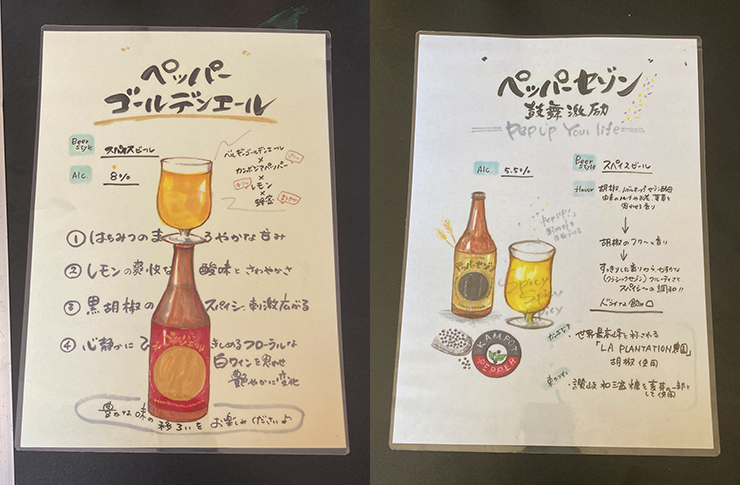 ペッパー
ゴールデンエール
Beer Style スパイスビール
Alc. 8%
ベルギーゴールデンエール
×
カンボジアペッパー
×
レモン
×
蜂蜜
① はちみつのまろやかな甘み
② レモンの爽快な酸味とさわやかさ
③ 黒胡椒のスパイシー刺激広がる
④ 心静かに
きしめるフローラルな
白ワインを思わせ
艶やかに変化
豊かな味の移ろいをお楽しみくださいよ
ペッパーセゾン
鼓舞激励
PEPUP Your life
Alc. 5.5%
Beer Style スパイスビール
Flavor 胡椒、
↓
胡椒のフワ〜と香り
↓
すっきりした香りから
スパイシーの調和!!
ドライな飲み口
ペッパーセゾン
Spicy
Spicy
Spicy
KAMPOT
PEPPER
・世界最高峰と称される
「LA PLANTATION農園」
胡椒使用
・讃岐和三盆糖を麦芽の一部として使用